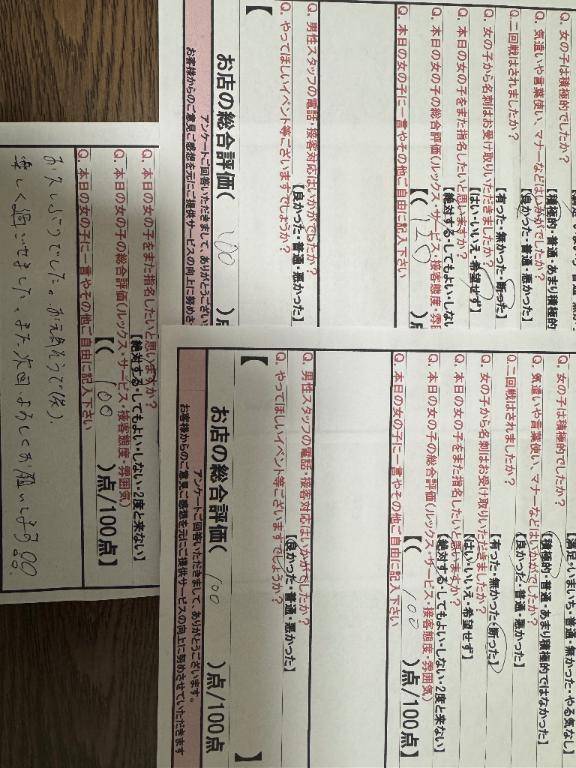 Q. 女の子は積極的でしたか？
【積極的・普通・あまり積極的
Q. 気遣いや言葉使い、マナーなどはいかがでしたか？
【良かった・普通・悪かった】
Q. 二回戦はされましたか？
【有った・無かった・断った】
Q. 女の子から名刺はお受け取りいただきましたか？
【はい・いいえ・希望せず】
Q. 本日の女の子をまた指名したいと思いますか？
【絶対する・してもよい・しない
Q. 本日の女の子の総合評価（ルックス・サービス・接客態度・雰囲
【（120
Q. 本日の女の子に一言やその他ご自由に記入下さい
Q. 男性スタッフの電話・接客対応はいかがでしたか？
【良かった・普通・悪かった】
Q. やってほしいイベント等ございますでしょうか？
【
お店の総合評価（ 100 ）点
アンケートご回答いただきまして、ありがとうござい
お客様からのご意見ご感想を元にご提供サービスの向上に努めさ
満足・しまいち・普通・無かった・やる気なし】
Q. 女の子は積極的でしたか？
【積極的・普通・あまり積極的ではなかった】
Q. 気遣いや言葉使い、マナーなどはいかがでしたか？
【良かった・普通・悪かった】
Q. 二回戦はされましたか？
【有った・無かった・断った】
Q. 女の子から名刺はお受け取りいただきましたか？
【はい・いいえ・希望せず】
Q. 本日の女の子をまた指名したいと思いますか？
【絶対する・してもよい・しない・2度と来ない】
Q. 本日の女の子の総合評価（ルックス・サービス・接客態度・雰囲気）
【（ 100 ）点/100点】
Q. 本日の女の子に一言やその他ご自由に記入下さい
Q. 男性スタッフの電話・接客対応はいかがでしたか？
【良かった・普通・悪かった】
Q. やってほしいイベント等ございますでしょうか？
【 】
お店の総合評価（ 100 ）点/100点
アンケートご回答いただきまして、ありがとうございます。
お客様からのご意見ご感想を元にご提供サービスの向上に努めさせていただきます
Q. 本日の女の子をまた指名したいと思いますか？
【絶対する・してもよい・しない・2度と来ない】
Q. 本日の女の子の総合評価（ルックス・サービス・接客態度・雰囲気）
【（ 100 ）点/100点】
Q. 本日の女の子に一言やその他ご自由に記入下さい
お久しぶりでした。お元気そうで
楽しく 。また次回よろしくお願いします